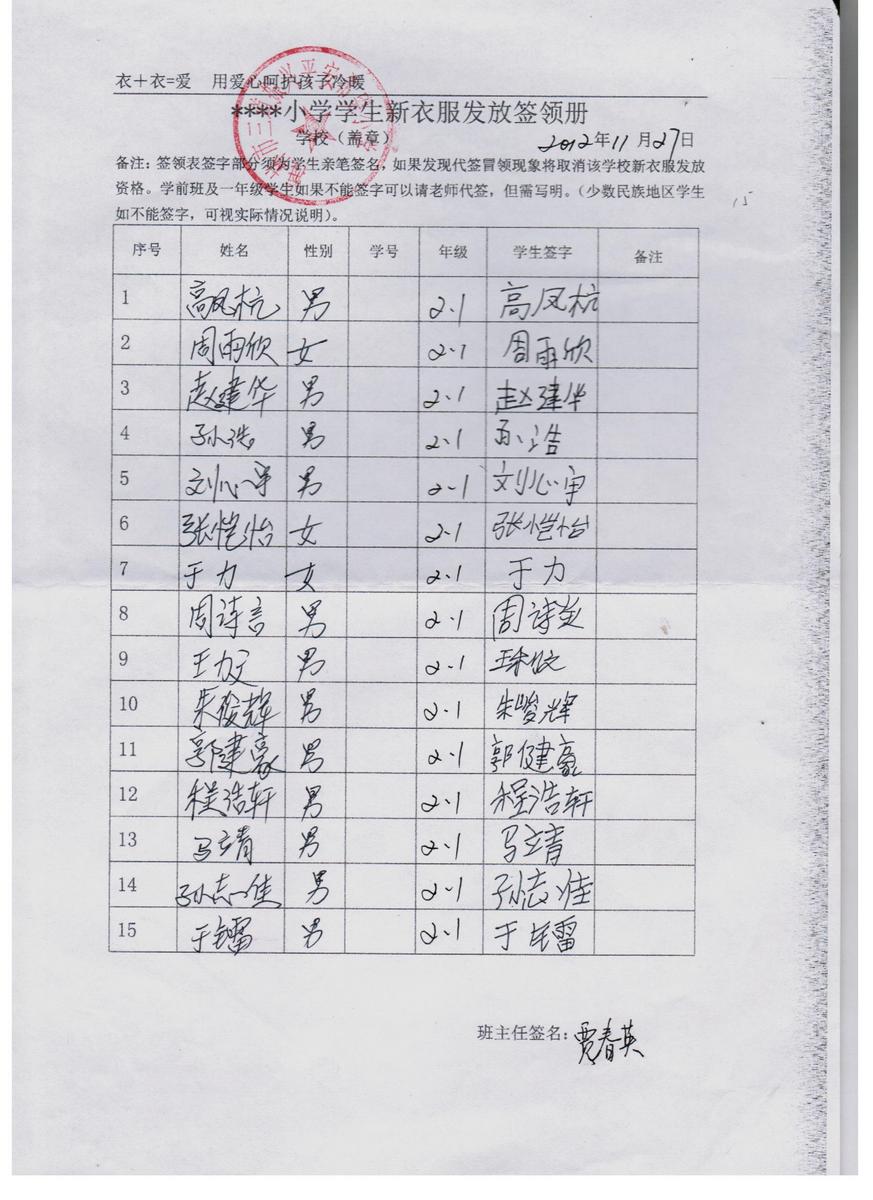 衣＋衣=爱 用爱心呵护孩子冷暖
****小学学生新衣服发放签领册
学校（盖章） 2012年11月27日
备注：签领表签字部分须为学生亲笔签名，如果发现代签冒领现象将取消该学校新衣服发放
资格。学前班及一年级学生如果不能签字可以请老师代签，但需写明。（少数民族地区学生
如不能签字，可视实际情况说明）。
15
序号 姓名 性别 学号 年级 学生签字 备注
1 高凤杭 男 2·1 高凤杭
2 周雨欣 女 2·1 周雨欣
3 赵建华 男 2·1 赵建华
4 孙浩 男 2·1 孙浩
5 刘心宇 男 2-1 刘心宇
6 张恺怡 女 2·1 张恺怡
7 于力 女 2·1 于力
8 周诗言 男 2·1 周诗
9 男 2·1
10 朱俊辉 男 2·1 朱峻辉
11 郭建豪 男 2·1 郭健豪
12 程浩轩 男 2·1 程浩轩
13 马立青 男 2·1 马立青
14 孙志佳 男 2·1 孙志佳
15 于 男 2·1 于
班主任签名：贾春英